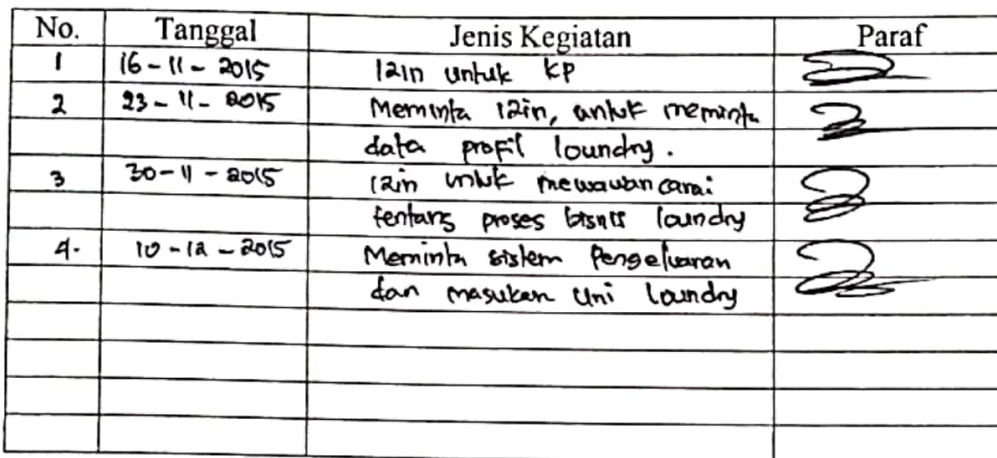 No. Tanggal Jenis Kegiatan Paraf
1 16-11-2015 Izin untuk KP
2 23-11-2015 Meminta izin, untuk meminta
data profil loundry.
3 30-11-2015 izin untuk mewawancarai
tentang proses bisnis loundry
4. 10-12-2015 Meminta sistem Pengeluaran
dan masukan Uni loundry